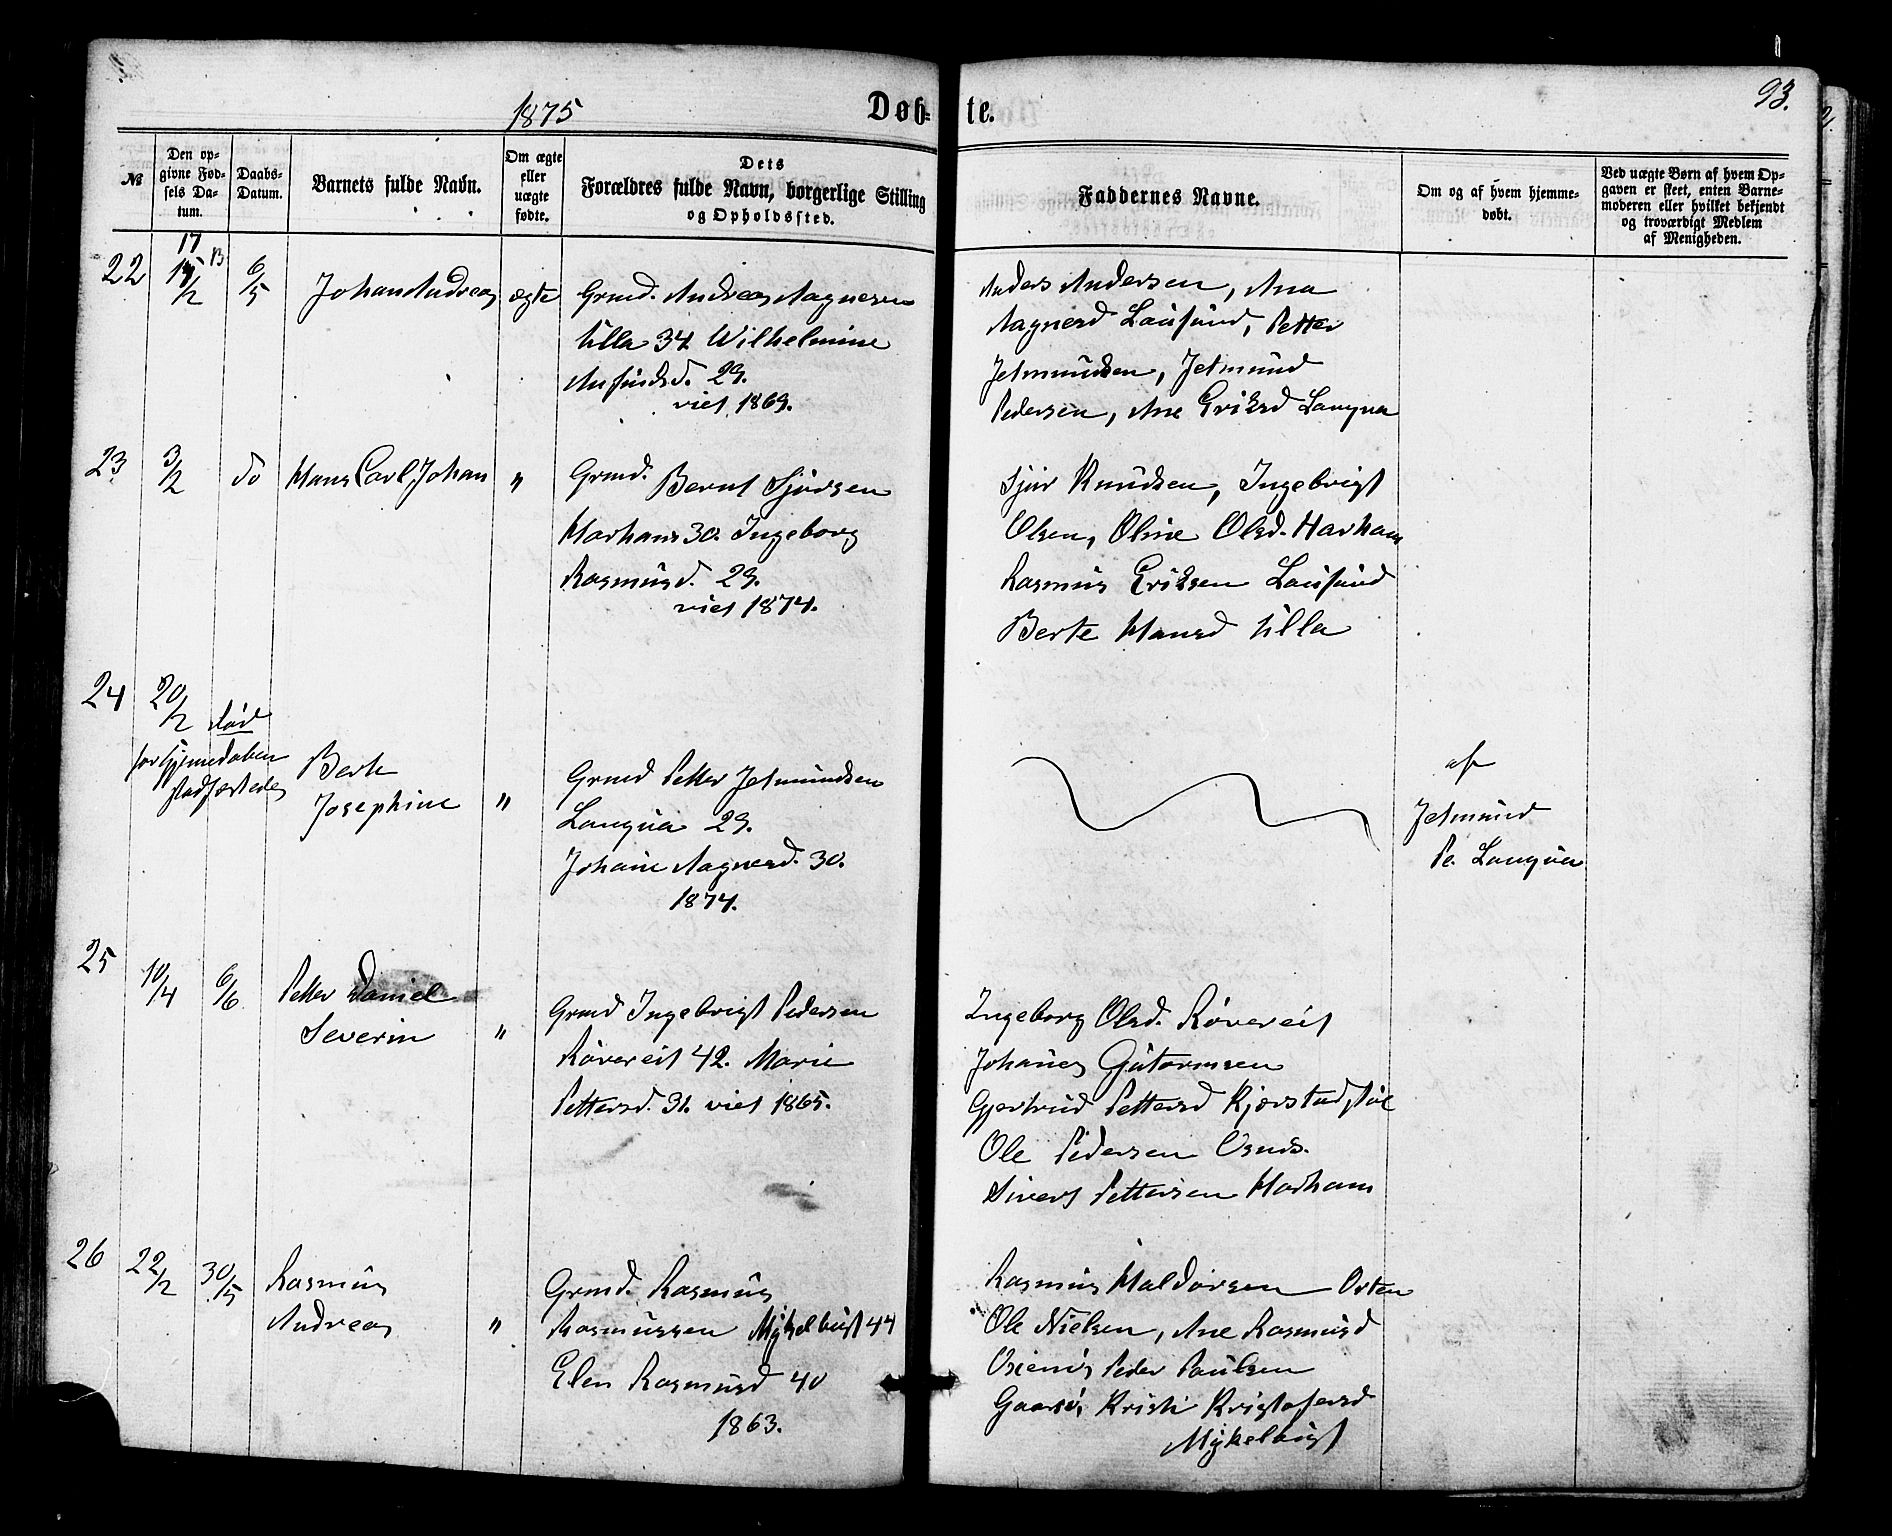 1875
Døb-
te.
93.
№
Den op-
givne Fød-
sels Da-
tum.
Daabs-
Datum.
Barnets fulde Navn.
Om ægte
eller
uægte
fødte.
Dets
Forældres fulde Navn, borgerlige Stilling
og Opholdssted.
Faddernes Navne.
Om og af hvem hjemme-
døbt.
Ved uægte Børn af hvem Op-
gaven er skeet, enten Barne-
moderen eller hvilket bekjendt
og troværdigt Medlem
af Menigheden.
22
17
/2
6/5
Johan Andreas
ægte
Grmd. Andreas Aagnesen
Ulla 34 Wilhelmine
Anfindsd. 29.
viet 1869.
Anders Andersen, Ana
Aagnesd Lausund, Petter
Jetmundsen, Jetmund
Pedersen, Ane Eriksd Langva
23
3/2
do
Hans Carl Johan
"
Grmd. Bernt Sjursen
Harhams 30. Ingeborg
Rasmusd. 29.
viet 1874.
Sjur Knudsen, Ingebrigt
Olsen, Oline Olsd. Harham
Rasmus Eriksen Lausund
Berte Hansd Ulla
24
20/2
død
før Hjemmedaaben
stadfæstedes
Berte
Josephine
"
Grmd Petter Jetmundsen
Langva 29.
Johane Aagnesd. 30.
1874.
af
Jetmund
Pe. Langva
25
10/4
6/6
Petter Daniel
Severin
"
Grmd Ingebrigt Pedersen
Røvereit 42. Marie
Pettersd. 31. viet 1865.
Ingeborg Olsd. Røvereit
Johanes Gutormsen
Gjertrud Pettersd Kjærstadstøl
Ole Pedersen
Sivert Pettersen Harham
26
22/2
30/5
Rasmus
Andreas
"
Grmd. Rasmus
Rasmussen Mykelbust 44
Elen Rasmusd 40
1863.
Rasmus Haldorsen Østen
Ole Nielsen, Ane Rasmusd
Peder Paulsen
Kristi Kristofersd
Mykelbust